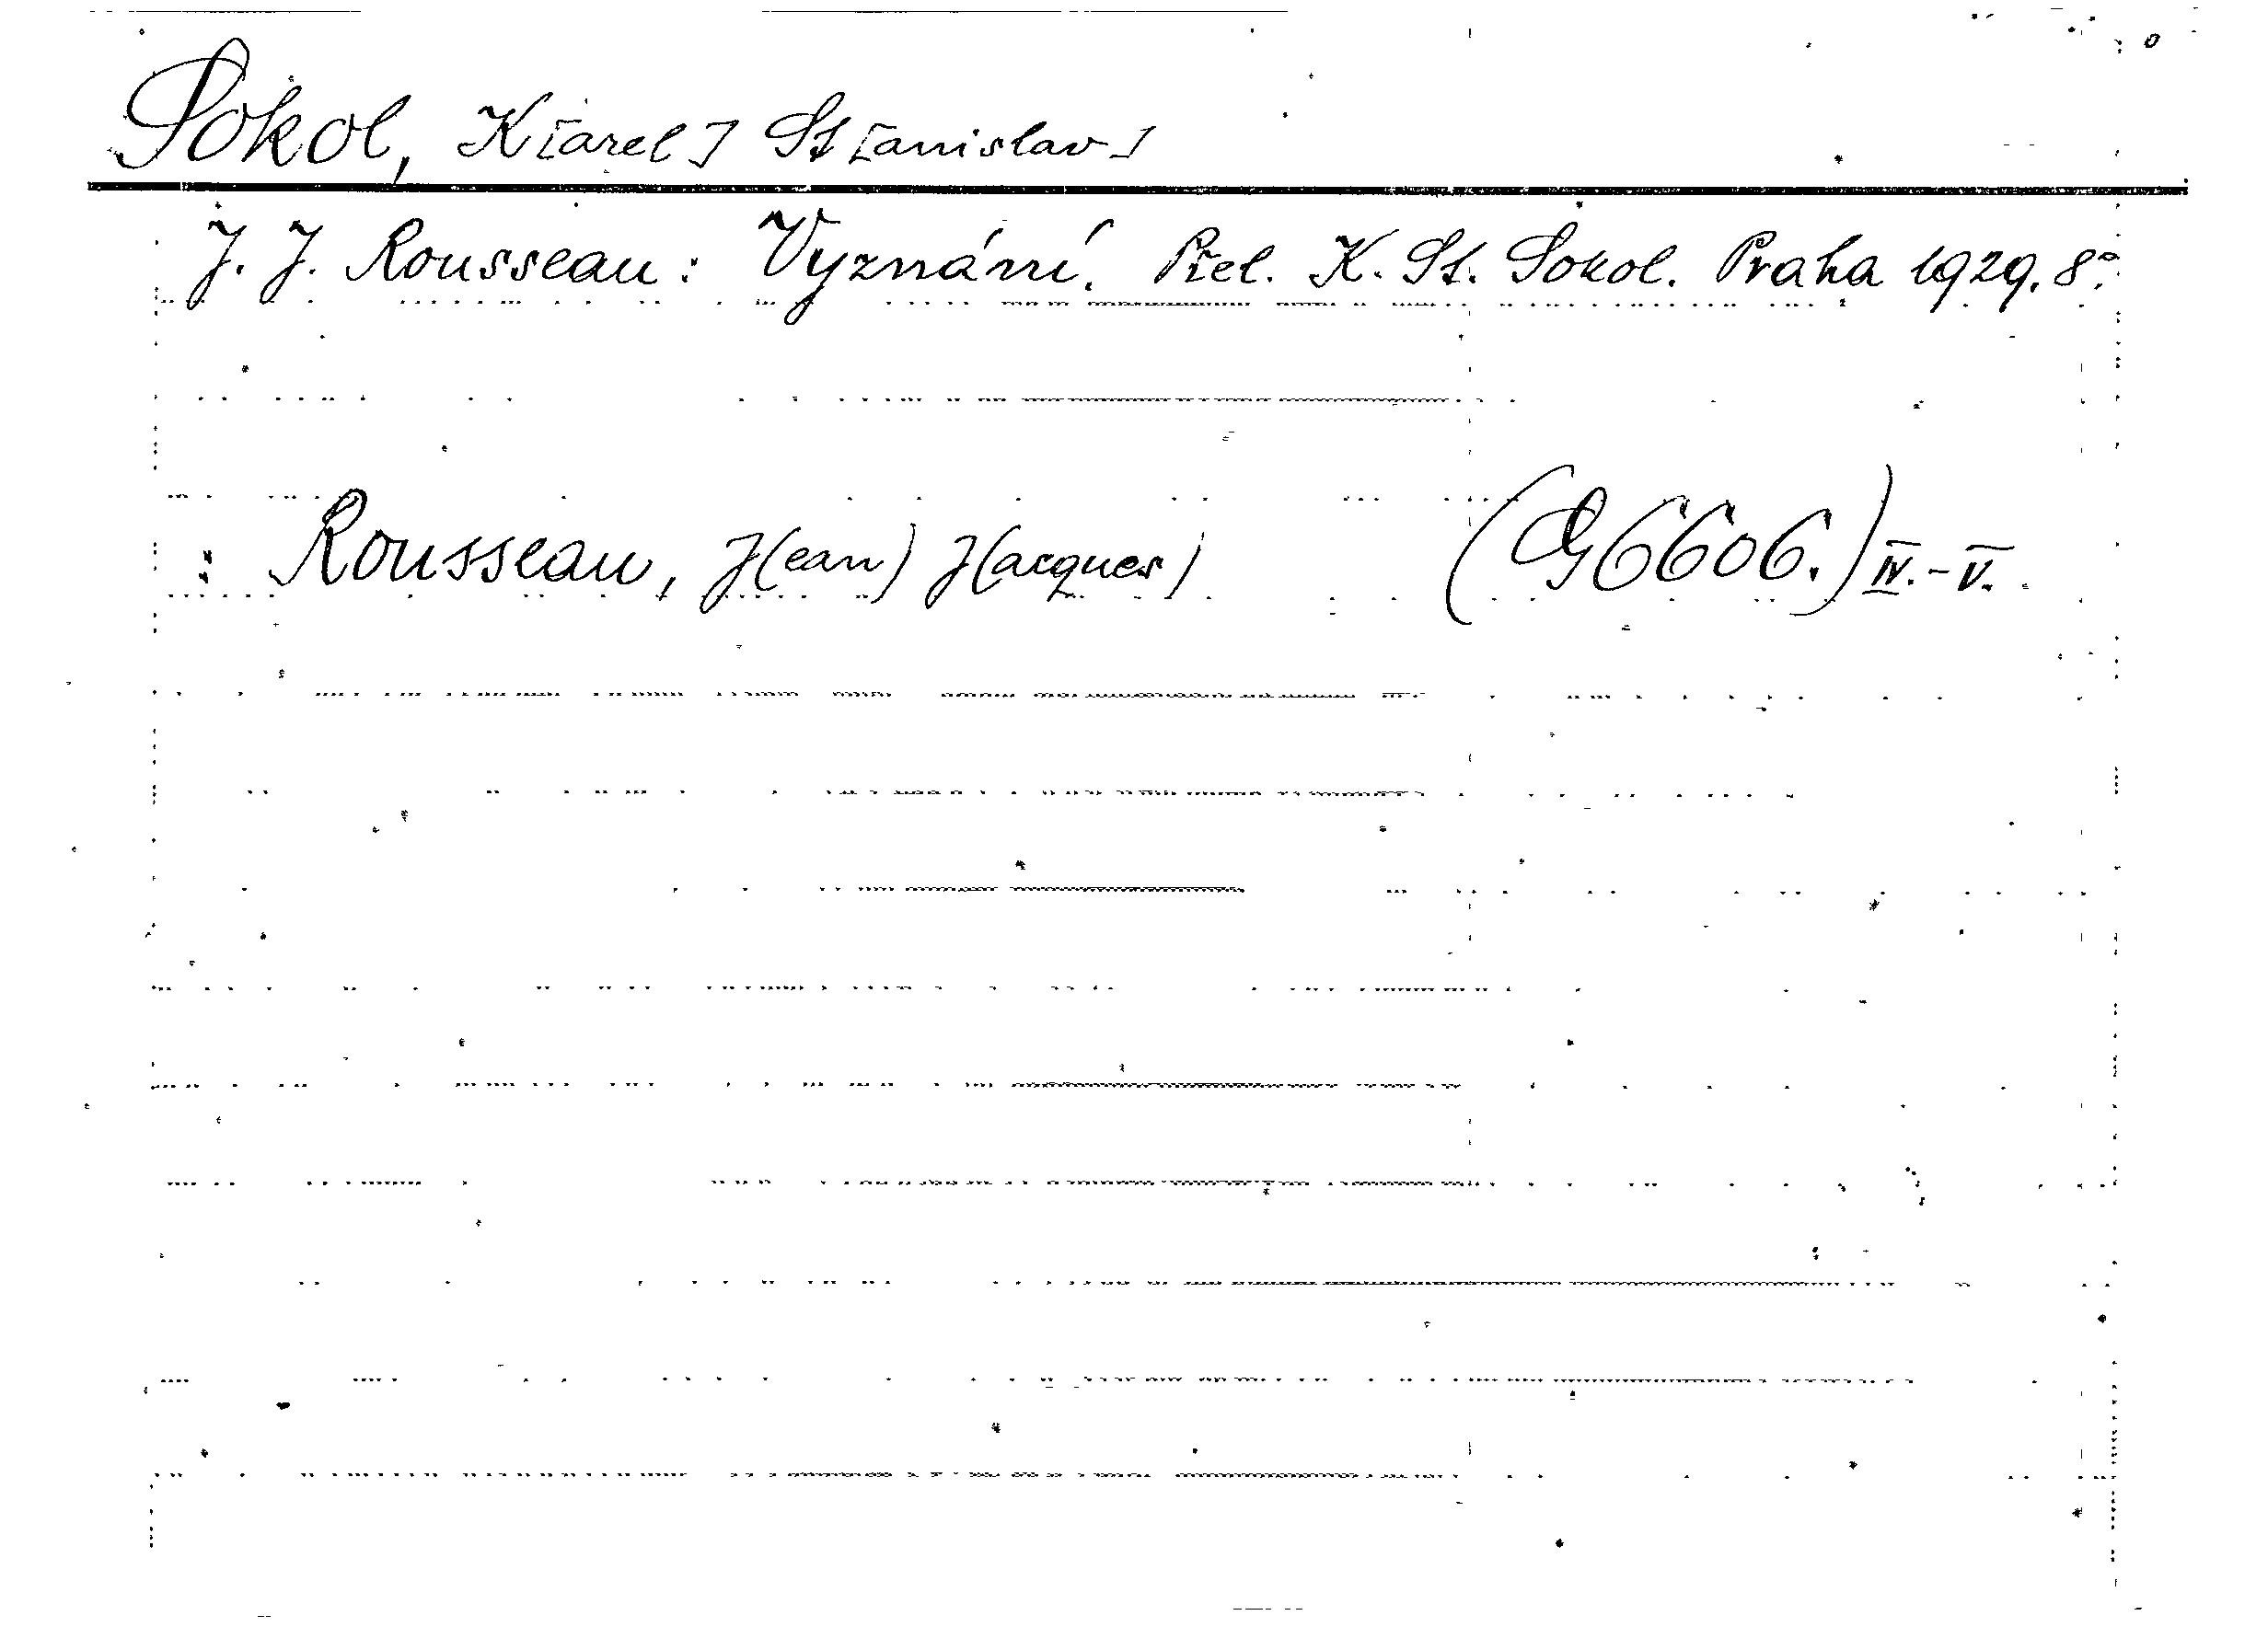 Sokol, K[arel] St[anislav]
J. J. Rousseau: Vyznání. Přel. K. St. Sokol. Praha 1929. 8°.
: Rousseau, J(ean) J(acques) (G 6606.) IV.-V.